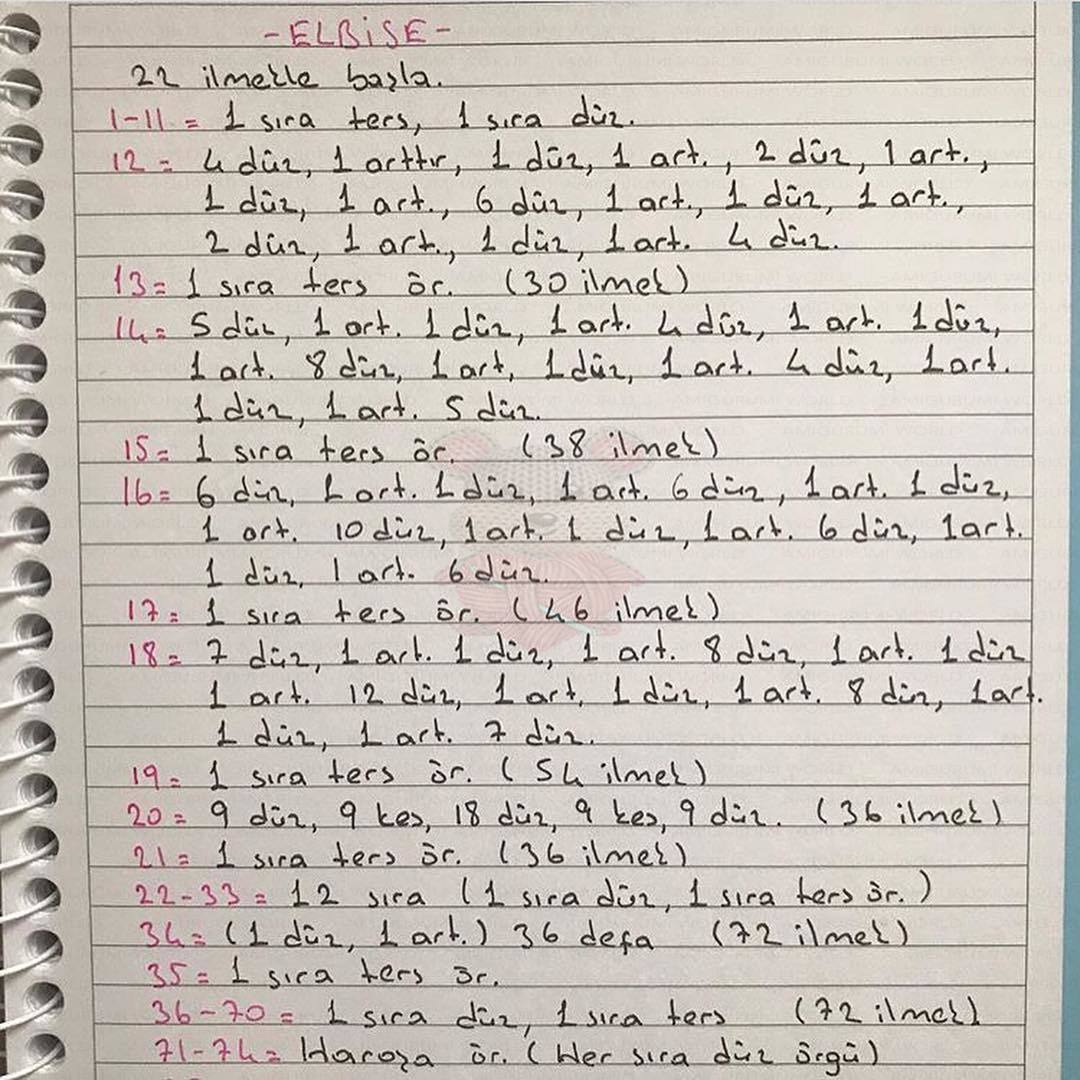 -ELBİSE-
22 ilmekle başla.
1-11 = 1 sıra ters, 1 sıra düz.
12 = 4 düz, 1 arttır, 1 düz, 1 art., 2 düz, 1 art.,
1 düz, 1 art., 6 düz, 1 art., 1 düz, 1 art.,
2 düz, 1 art., 1 düz, 1 art. 4 düz.
13= 1 sıra ters ör. (30 ilmek)
14= 5 düz, 1 art. 1 düz, 1 art. 4 düz, 1 art. 1 düz,
1 art. 8 düz, 1 art, 1 düz, 1 art. 4 düz, 1 art.
1 düz, 1 art. 5 düz.
15= 1 sıra ters ör. (38 ilmek)
16= 6 düz, 1 art. 1 düz, 1 art. 6 düz, 1 art. 1 düz,
1 art. 10 düz, 1 art. 1 düz, 1 art. 6 düz, 1 art.
1 düz, 1 art. 6 düz.
17= 1 sıra ters ör. (46 ilmek)
18= 7 düz, 1 art. 1 düz, 1 art. 8 düz, 1 art. 1 düz
1 art. 12 düz, 1 art, 1 düz, 1 art. 8 düz, 1 art.
1 düz, 1 art. 7 düz.
19= 1 sıra ters ör. (54 ilmek)
20= 9 düz, 9 kes, 18 düz, 9 kes, 9 düz. (36 ilmek)
21= 1 sıra ters ör. (36 ilmek)
22-33= 12 sıra (1 sıra düz, 1 sıra ters ör.)
34= (1 düz, 1 art.) 36 defa (72 ilmek)
35= 1 sıra ters ör.
36-70= 1 sıra düz, 1 sıra ters (72 ilmek)
71-74= Haroşa ör. (Her sıra düz örgü)